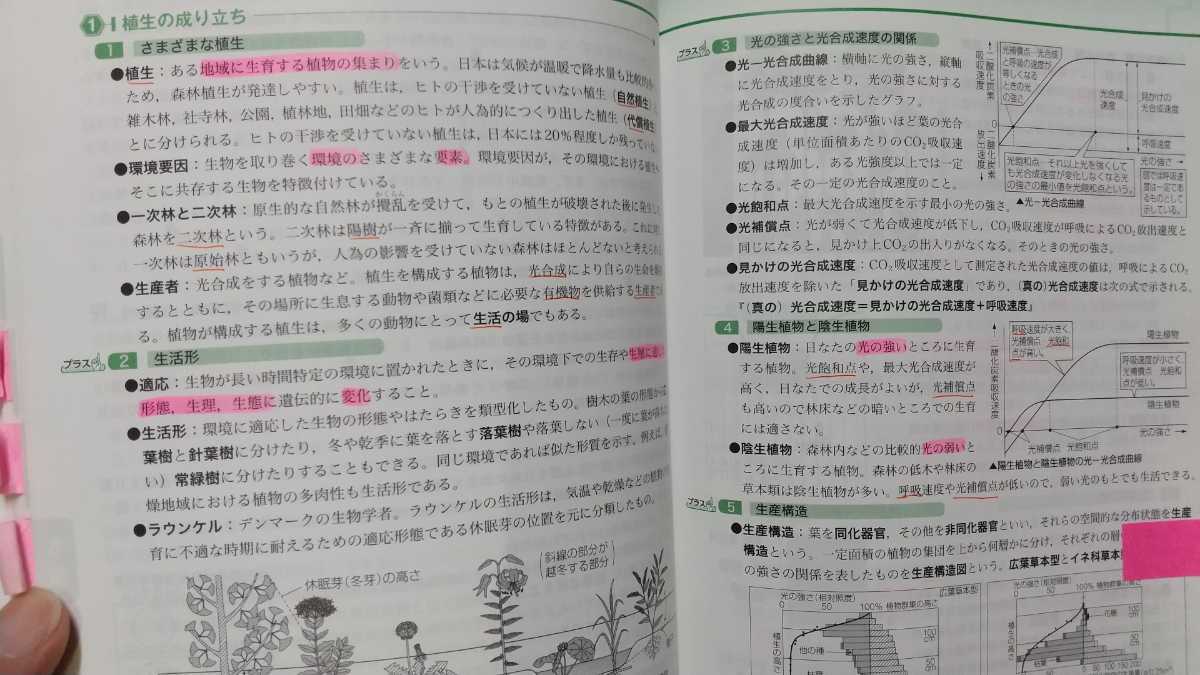 ① I 植生の成り立ち
1 さまざまな植生
●植生：ある地域に生育する植物の集まりをいう。日本は気候が温暖で降水量も比較的
ため，森林植生が発達しやすい。植生は，ヒトの干渉を受けていない植生（自然植生）
雑木林，社寺林，公園，植林地，田畑などのヒトが人為的につくり出した植生（代償植生
とに分けられる。ヒトの干渉を受けていない植生は，日本には20％程度しか残ってい
●環境要因：生物を取り巻く環境のさまざまな要素。環境要因が，その環境における植生
そこに共存する生物を特徴付けている。
●一次林と二次林：原生的な自然林が攪乱を受けて，もとの植生が破壊された後に発生し
かくらん
森林を二次林という。二次林は陽樹が一斉に揃って生育している特徴がある。これに対し
一次林は原始林ともいうが，人為の影響を受けていない森林はほとんどないと考えられ
●生産者：光合成をする植物など。植生を構成する植物は，光合成により自らの生命を維持
するとともに，その場所に生息する動物や菌類などに必要な有機物を供給する生産者で
る。植物が構成する植生は，多くの動物にとって生活の場でもある。
プラス 2 生活形
●適応：生物が長い時間特定の環境に置かれたときに，その環境下での生存や
形態，生理，生態に遺伝的に変化すること。
●生活形：環境に適応した生物の形態やはたらきを類型化したもの。樹木の葉の形態から
葉樹と針葉樹に分けたり，冬や乾季に葉を落とす落葉樹や落葉しない（一度に葉が
い）常緑樹に分けたりすることもできる。同じ環境であれば似た形質を示す。例えば，
燥地域における植物の多肉性も生活形である。
●ラウンケル：デンマークの生物学者。ラウンケルの生活形は，気温や乾燥などの
育に不適な時期に耐えるための適応形態である休眠芽の位置を元に分類したもの。
休眠芽（冬芽）の高さ
（斜線の部分が
越冬する部分）
プラス 3 光の強さと光合成速度の関係
●光－光合成曲線：横軸に光の強さ，縦軸
に光合成速度をとり，光の強さに対する
光合成の度合いを示したグラフ。
●最大光合成速度：光が強いほど葉の光合
成速度（単位面積あたりのCO₂吸収速
度）は増加し，ある光強度以上では一定
になる。その一定の光合成速度のこと。
●光飽和点：最大光合成速度を示す最小の光の強さ。
●光補償点：光が弱くて光合成速度が低下し，CO₂吸収速度が呼吸によるCO₂放出速度と
同じになると，見かけ上CO₂の出入りがなくなる。そのときの光の強さ。
●見かけの光合成速度：CO₂吸収速度として測定された光合成速度の値は，呼吸によるCO₂
放出速度を除いた「見かけの光合成速度」であり，（真の）光合成速度は次の式で示される。
『（真の）光合成速度＝見かけの光合成速度＋呼吸速度』
二酸化炭素
吸収速度
二酸化炭素
放出速度
光補償点…光合成
と呼吸の速度が
等しくなる
ときの光
の強さ
光合成
速度
見かけの
光合成速度
呼吸速度
光の強さ→
光飽和点…それ以上光を強くして
も光合成速度が変化しなくなる光
の強さの最小値を光飽和点という。
図では呼吸速
度は一定であ
るものとして
示している。
▲光－光合成曲線
4 陽生植物と陰生植物
●陽生植物：日なたの光の強いところに生育
する植物。光飽和点や，最大光合成速度が
高く，日なたでの成長がよいが，光補償点
も高いので林床などの暗いところでの生育
には適さない。
●陰生植物：森林内などの比較的光の弱いと
ころに生育する植物。森林の低木や林床の
草本類は陰生植物が多い。呼吸速度や光補償点が低いので，弱い光のもとでも生活できる。
二酸化炭素吸収速度
呼吸速度が大きく，
光補償点 光飽和
点が高い。
陽生植物
呼吸速度が小さく，
光補償点 光飽和
点が低い。
陰生植物
光補償点 光飽和点 光の強さ→
▲陽生植物と陰生植物の光－光合成曲線
プラス 5 生産構造
●生産構造：葉を同化器官，その他を非同化器官といい，それらの空間的な分布状態を生産
構造という。一定面積の植物の集団を上から何層かに分け，それぞれの層
の強さの関係を表したものを生産構造図という。広葉草本型とイネ科草本
光の強さ（相対照度） 広葉草本型
0 50 100％ 植物群集の高さ
100
cm
50
cm
植生の高さ
他の種
枯葉
光の強さ（相対照度）
0 50 100％ 植物群集の高さ
花穂
100
cm
50
cm
植生の高さ
枯葉
0 50 100 150 200